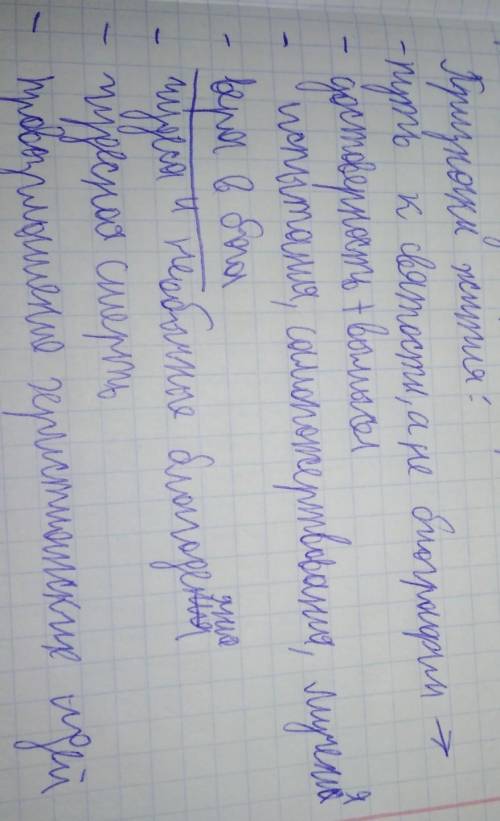 Признаки жития:
- путь к святости, а не биографии →
- достоверность + вымысел
- испытания, самопожертвования, мучения
- вера в бога
- чудеса и необычные благодеяния
- чудесная смерть
- провозглашение христианских идей